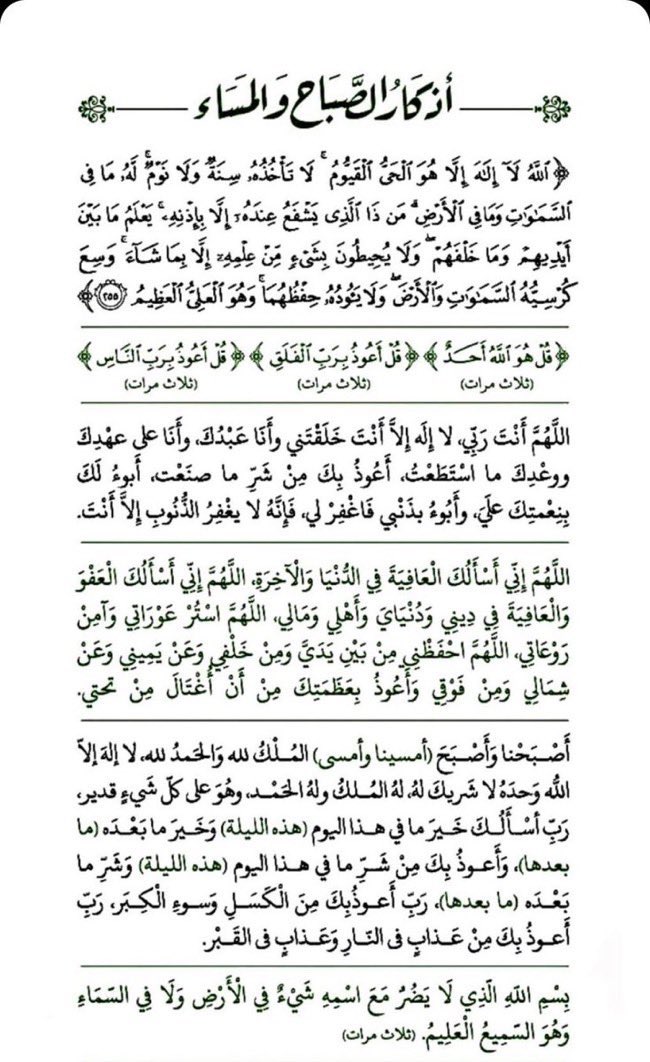 أذكار الصَّبَاح وَالمَسَاء
﴿ ٱللَّهُ لَآ إِلَٰهَ إِلَّا هُوَ ٱلْحَىُّ ٱلْقَيُّومُ ۚ لَا تَأْخُذُهُۥ سِنَةٌ وَلَا نَوْمٌ ۚ لَّهُۥ مَا فِى
ٱلسَّمَٰوَٰتِ وَمَا فِى ٱلْأَرْضِ ۗ مَن ذَا ٱلَّذِى يَشْفَعُ عِندَهُۥٓ إِلَّا بِإِذْنِهِۦ ۚ يَعْلَمُ مَا بَيْنَ
أَيْدِيهِمْ وَمَا خَلْفَهُمْ ۖ وَلَا يُحِيطُونَ بِشَىْءٍ مِّنْ عِلْمِهِۦٓ إِلَّا بِمَا شَآءَ ۚ وَسِعَ
كُرْسِيُّهُ ٱلسَّمَٰوَٰتِ وَٱلْأَرْضَ ۖ وَلَا يَـُٔودُهُۥ حِفْظُهُمَا ۚ وَهُوَ ٱلْعَلِىُّ ٱلْعَظِيمُ ٢٥٥ ﴾
﴿ قُلْ هُوَ ٱللَّهُ أَحَدٌ ﴾ ﴿ قُلْ أَعُوذُ بِرَبِّ ٱلْفَلَقِ ﴾ ﴿ قُلْ أَعُوذُ بِرَبِّ ٱلنَّاسِ ﴾
(ثلاث مرات) (ثلاث مرات) (ثلاث مرات)
اللَّهُمَّ أَنْتَ رَبِّي، لا إِلَه إِلاَّ أَنْتَ خَلَقْتَني وأَنَا عَبْدُكَ، وأَنَا على عهْدِكَ
ووعْدِكَ ما اسْتَطَعْتُ، أَعُوذُ بِكَ مِنْ شَرِّ ما صنَعْت، أَبوءُ لَكَ
بِنِعْمتِكَ علَيَ، وأَبُوءُ بذَنْبي فَاغْفِرْ لي، فَإِنَّهُ لا يغْفِرُ الذُّنُوبِ إِلاَّ أَنْتَ.
اللَّهُمَّ إِنِّي أَسْأَلُكَ الْعَافِيَةَ فِي الدُّنْيَا وَالْآخِرَةِ، اللَّهُمَّ إِنِّي أَسْأَلُكَ الْعَفْوَ
وَالْعَافِيَةَ فِي دِينِي وَدُنْيَايَ وَأَهْلِي وَمَالِي، اللَّهُمَّ اسْتُرْ عَوْرَاتِي وَآمِنْ
رَوْعَاتِي، اللَّهُمَّ احْفَظْنِي مِنْ بَيْنِ يَدَيَّ وَمِنْ خَلْفِي وَعَنْ يَمِينِي وَعَنْ
شِمَالِي وَمِنْ فَوْقِي وَأَعُوذُ بِعَظَمَتِكَ مِنْ أَنْ أُغْتَالَ مِنْ تحتي.
أَصْبَحْنا وَأَصْبَحَ (أمسينا وأمسى) المُلْكُ لله وَالحَمدُ لله، لا إلهَ إلاّ
اللّه وَحدَهُ لا شَريكَ لهُ، لهُ المُلكُ ولهُ الحَمْد، وهُوَ على كلّ شَيءٍ قدير،
رَبِّ أسْأَلُكَ خَيرَ ما في هذا اليوم (هذه الليلة) وَخَيرَ ما بَعْدَه (ما
بعدها)، وَأَعوذُ بِكَ مِنْ شَرِّ ما في هذا اليوم (هذه الليلة) وَشَرِّ ما
بَعْدَه (ما بعدها)، رَبِّ أَعوذُبِكَ مِنَ الْكَسَلِ وَسوءِ الْكِبَر، رَبِّ
أَعوذُ بِكَ مِنْ عَذابٍ في النّارِ وَعَذابٍ في القَبْر.
بِسْمِ اللَّهِ الَّذِي لَا يَضُرُ مَعَ اسْمِهِ شَيْءٌ فِي الْأَرْضِ وَلَا فِي السَّمَاءِ
وَهُوَ السَّمِيعُ الْعَلِيمُ. (ثلاث مرات)